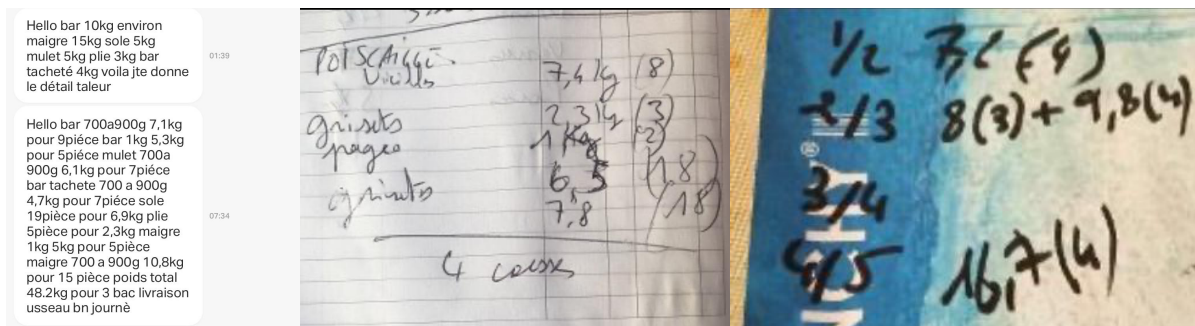 Hello bar 10kg environ
maigre 15kg sole 5kg
mulet 5kg plie 3kg bar
tacheté 4kg voila jte donne
le détail taleur
01:39
Hello bar 700a900g 7,1kg
pour 9piéce bar 1kg 5,3kg
pour 5piéce mulet 700a
900g 6,1kg pour 7piéce
bar tachete 700 a 900g
4,7kg pour 7piéce sole
19pièce pour 6,9kg plie
5pièce pour 2,3kg maigre
1kg 5kg pour 5pièce
maigre 700 a 900g 10,8kg
pour 15 pièce poids total
48.2kg pour 3 bac livraison
usseau bn journè
07:34
7,4 kg (8)
grisets 2,3 kg (3)
1 kg (2)
6,5 (18)
grisets 7,8 (18)
4
1/2
2/3 8(3) + 9,8(4)
3/4
4/5 16,7(4)